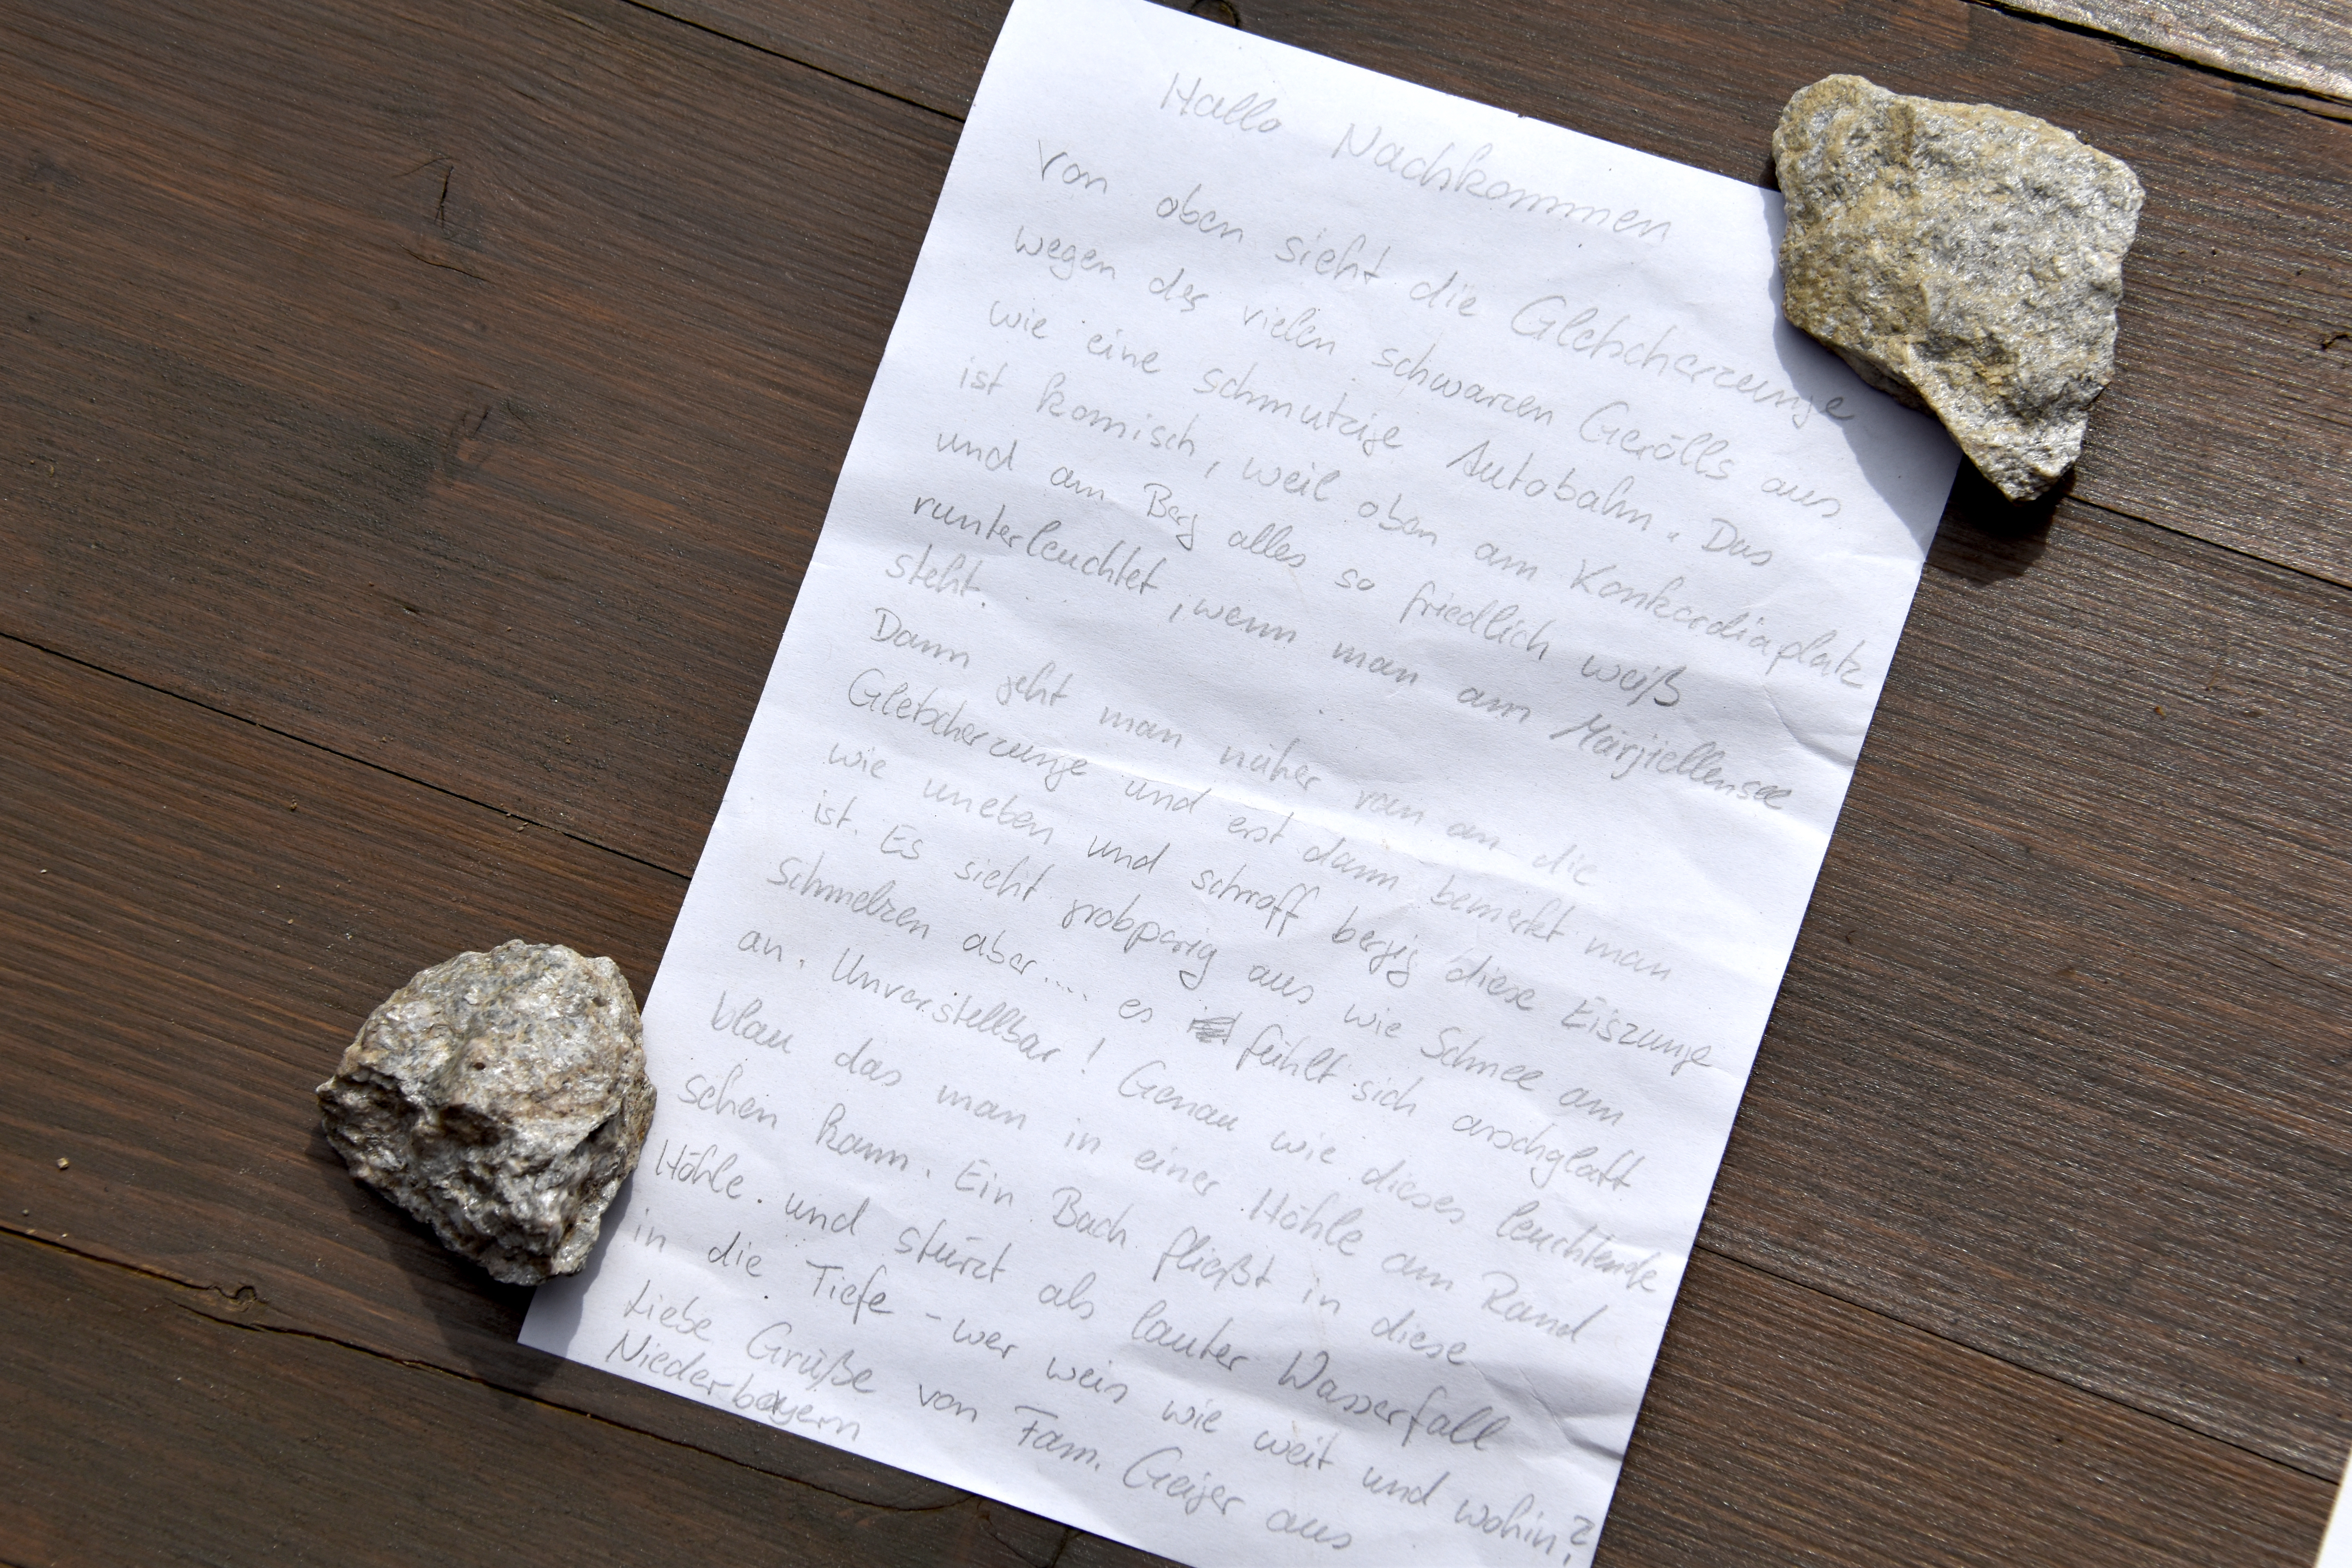 Hallo Nachkommen
Von oben sieht die Gletscherzunge
wegen des vielen schwarzen Gerölls aus
wie eine schmutzige Autobahn. Das
ist komisch, weil oben am Konkordiaplatz
und am Berg alles so friedlich weiß
runterleuchtet, wenn man am Märjellensee
steht.
Dann geht man näher ran an die
Gletscherzunge und erst dann bemerkt man
wie uneben und schroff bergig diese Eiszunge
ist. Es sieht grobporig aus wie Schnee am
Schmelzen aber.... es fühlt sich arschglatt
an. Unvorstellbar! Genau wie dieses leuchtende
blau das man in einer Höhle am Rand
sehen kann. Ein Bach fließt in diese
Höhle und stürzt als lauter Wasserfall
in die Tiefe - wer weis wie weit und wohin?
Liebe Grüße von Fam. Geiger aus
Niederbayern